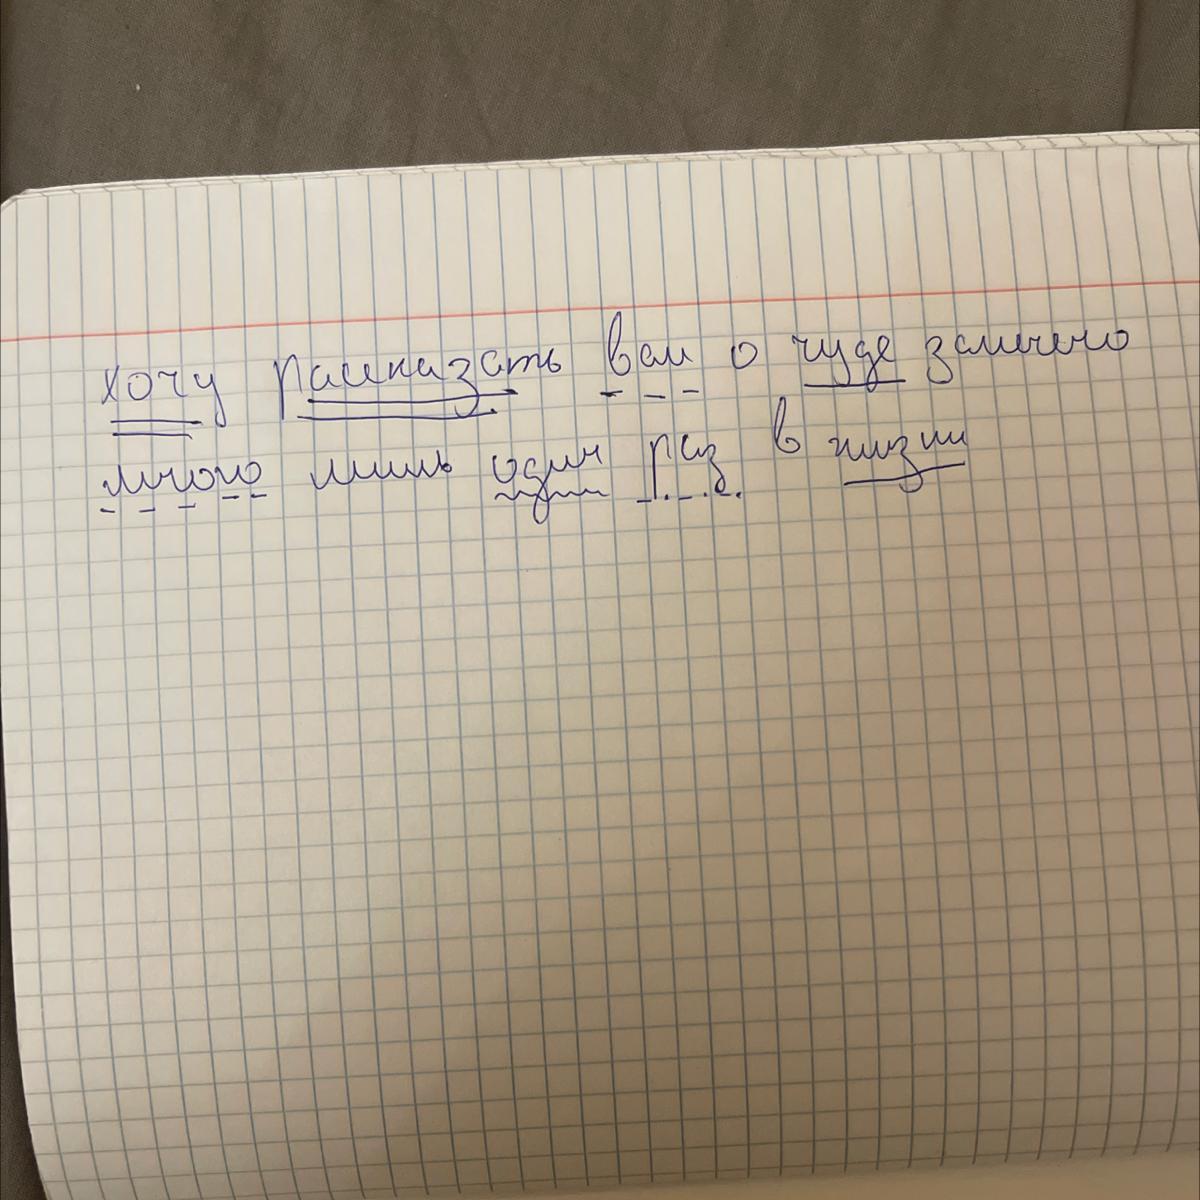 хочу рассказать вам о чуде замечено
мною лишь один раз в жизни